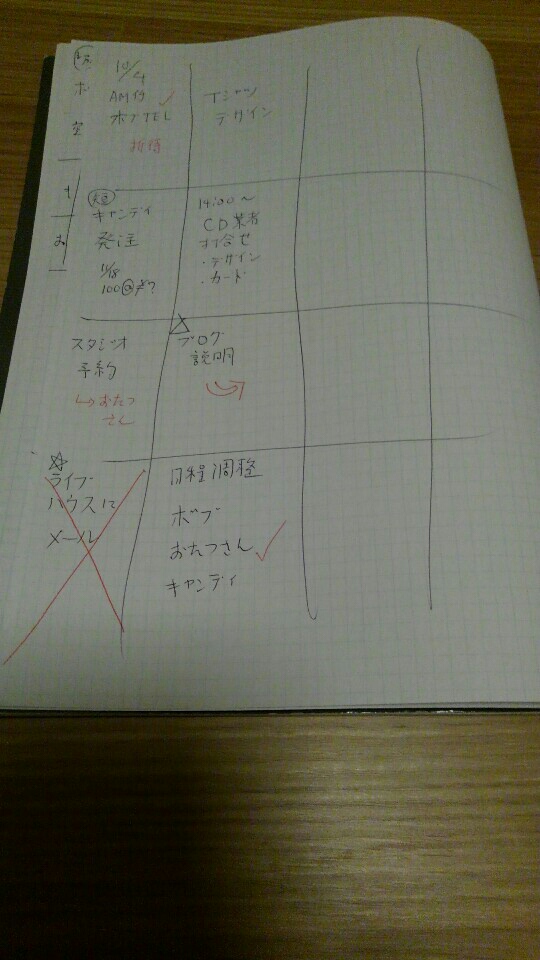 ボ
空
10/4
AM10
ボブTEL
折待
Tシャツ
デザイン
キャンディ
発注
11/18
14:00〜
CD業者
打合せ
・デザイン
・カード
スタジオ
予約
↳おたつ
さん
ブログ
説明
☆
ライブ
ハウスに
メール
日程調整
ボブ
おたつさん
キャンディ